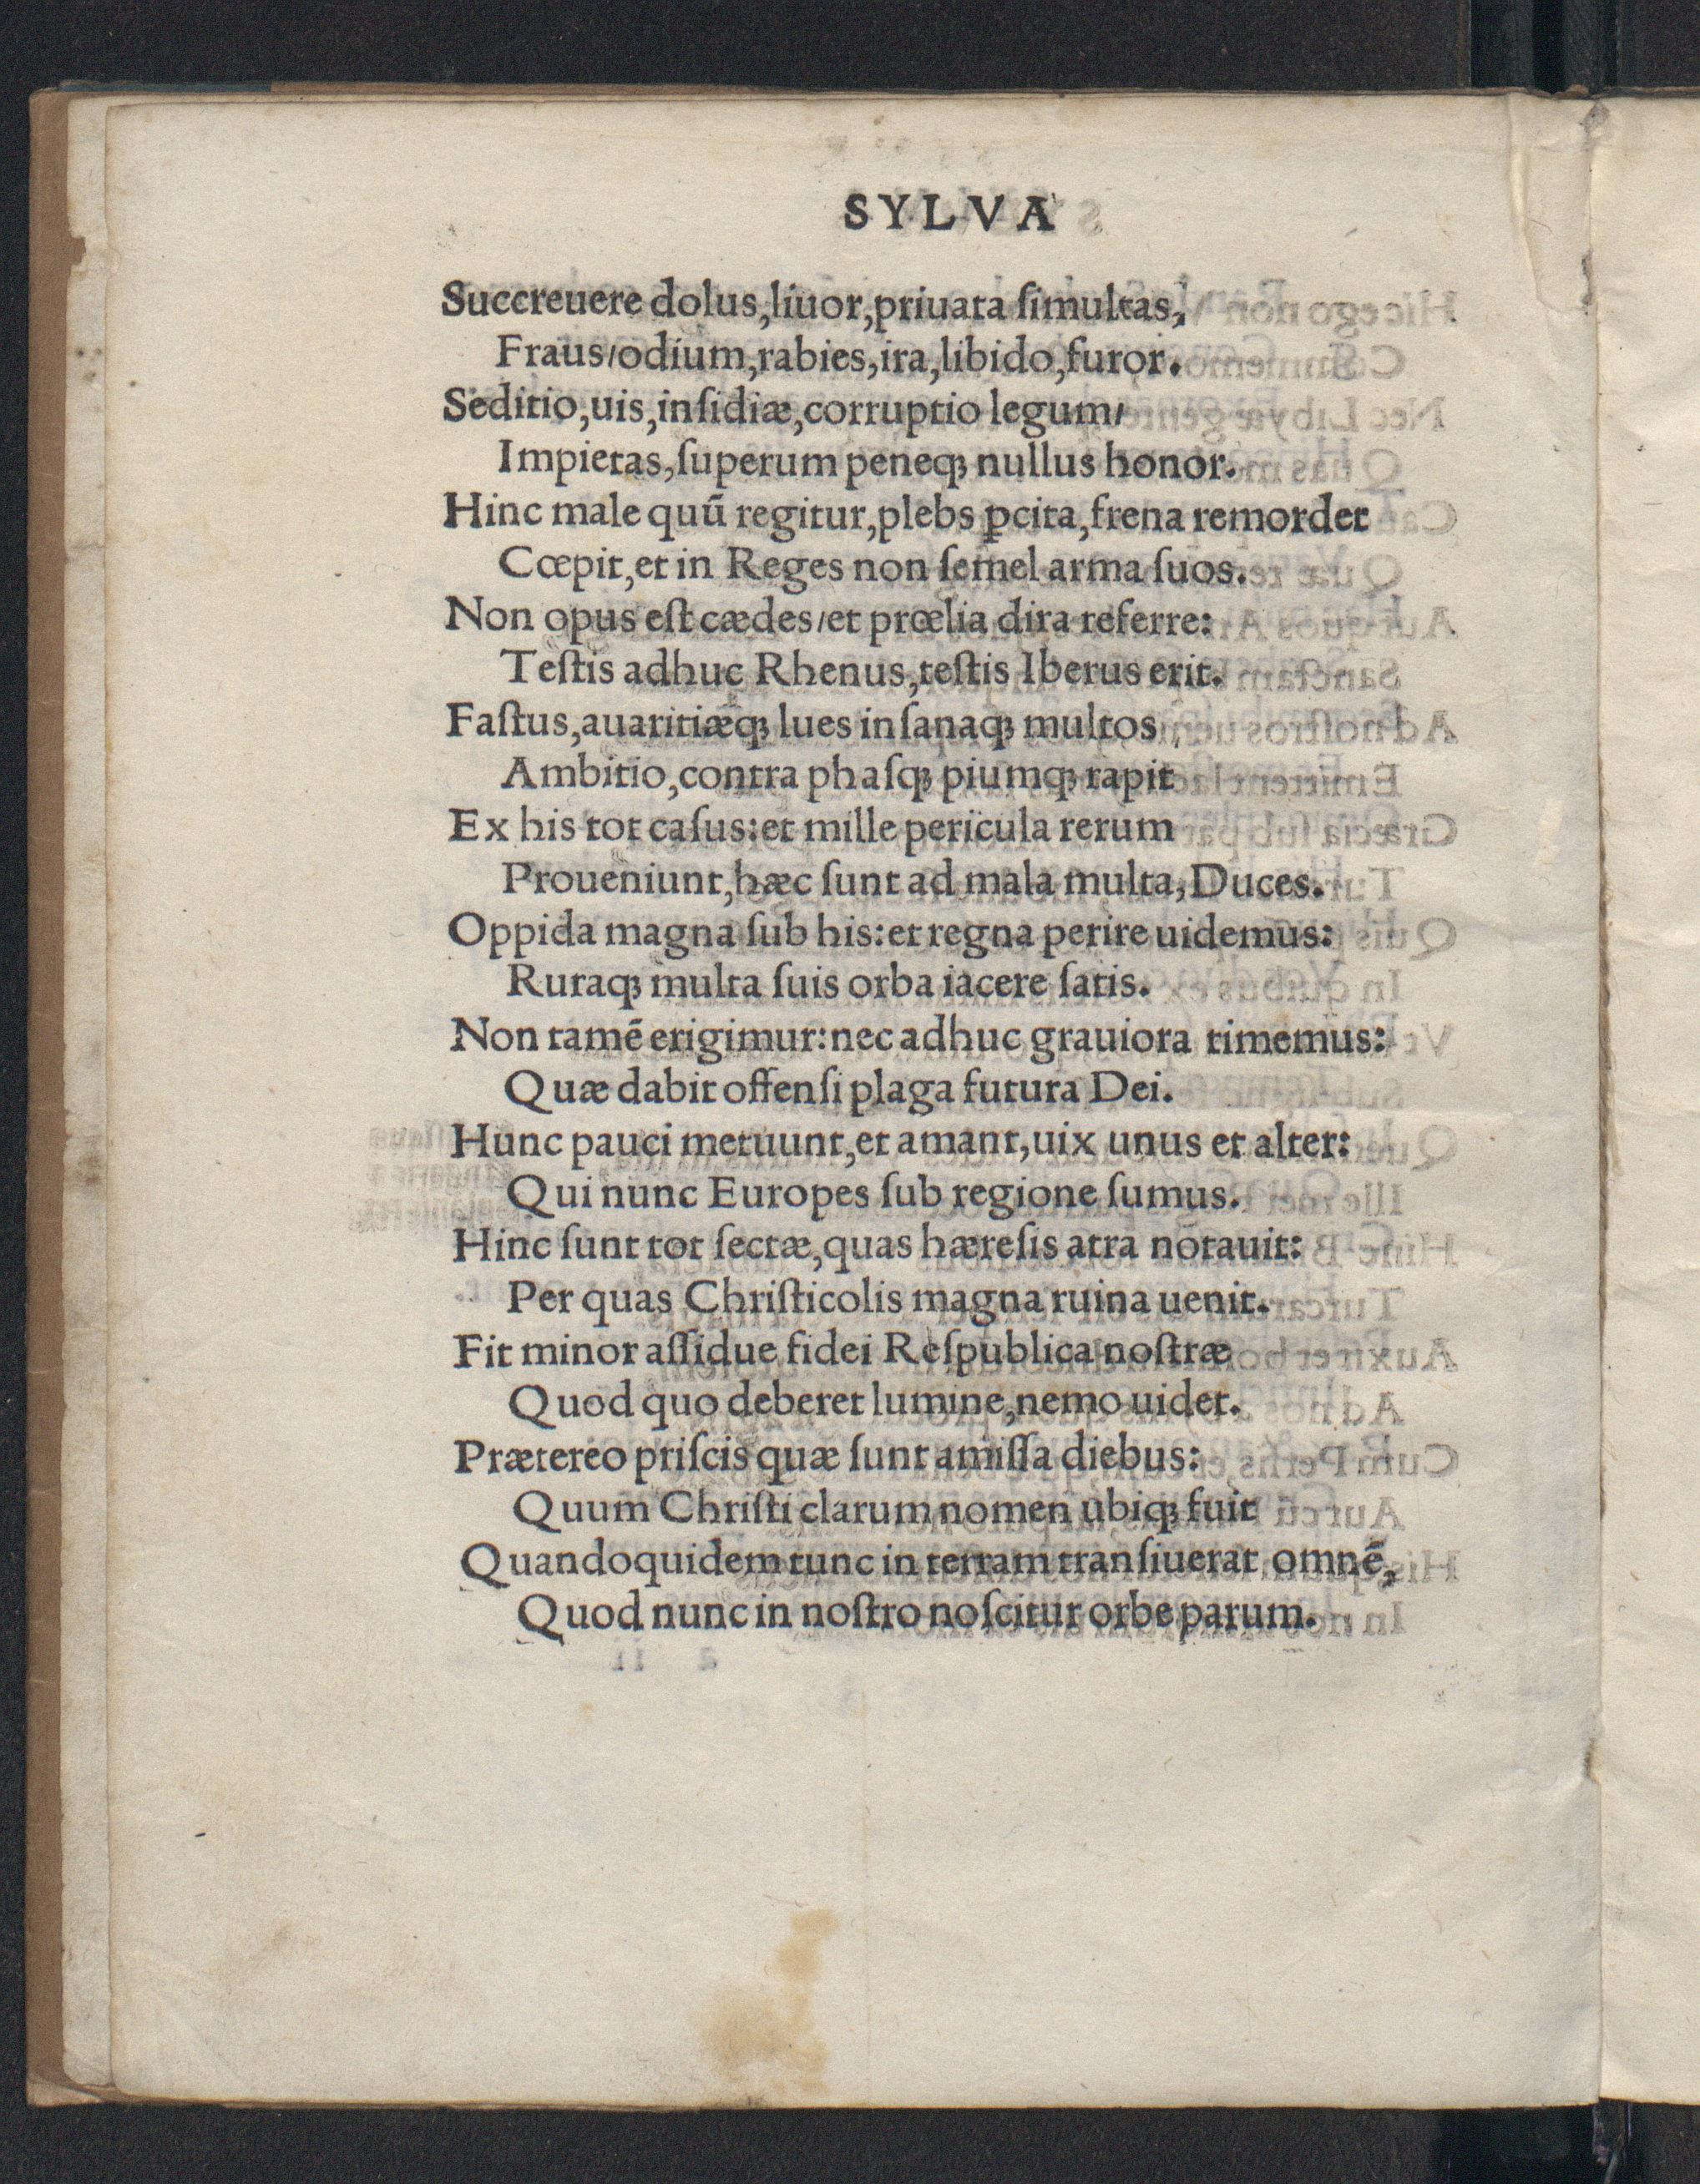 SYLVA
Succreuere dolus,liuor,priuata ſimultas,
Fraus/odium,rabies,ira,libido,furor.
Seditio,uis,inſidiæ,corruptio legum/
Impietas,ſuperum peneqꝫ nullus honor.
Hinc male quū regitur,plebs ꝑcita,frena remordet
Cœpit,et in Reges non ſemel arma ſuos.
Non opus eſt cædes/et prœlia dira referre:
Teſtis adhuc Rhenus,teſtis Iberus erit.
Faſtus,auaritiæqꝫ lues inſanaqꝫ multos
Ambitio,contra phaſqꝫ piumqꝫ rapit
Ex his tot caſus:et mille pericula rerum
Proueniunt,hæc ſunt ad mala multa,Duces.
Oppida magna ſub his:et regna perire uidemus:
Ruraqꝫ multa ſuis orba iacere ſatis.
Non tamē erigimur:nec adhuc grauiora timemus:
Quæ dabit offenſi plaga futura Dei.
Hunc pauci metuunt,et amant,uix unus et alter:
Qui nunc Europes ſub regione ſumus.
Hinc ſunt tot ſectæ,quas hæreſis atra notauit:
Per quas Chriſticolis magna ruina uenit.
Fit minor aſſidue fidei Reſpublica noſtræ
Quod quo deberet lumine,nemo uidet.
Prætereo priſcis quæ ſunt amiſſa diebus:
Quum Chriſti clarum nomen ubiqꝫ fuit
Quandoquidem tunc in terram tranſiuerat omnē,
Quod nunc in noſtro noſcitur orbe parum.